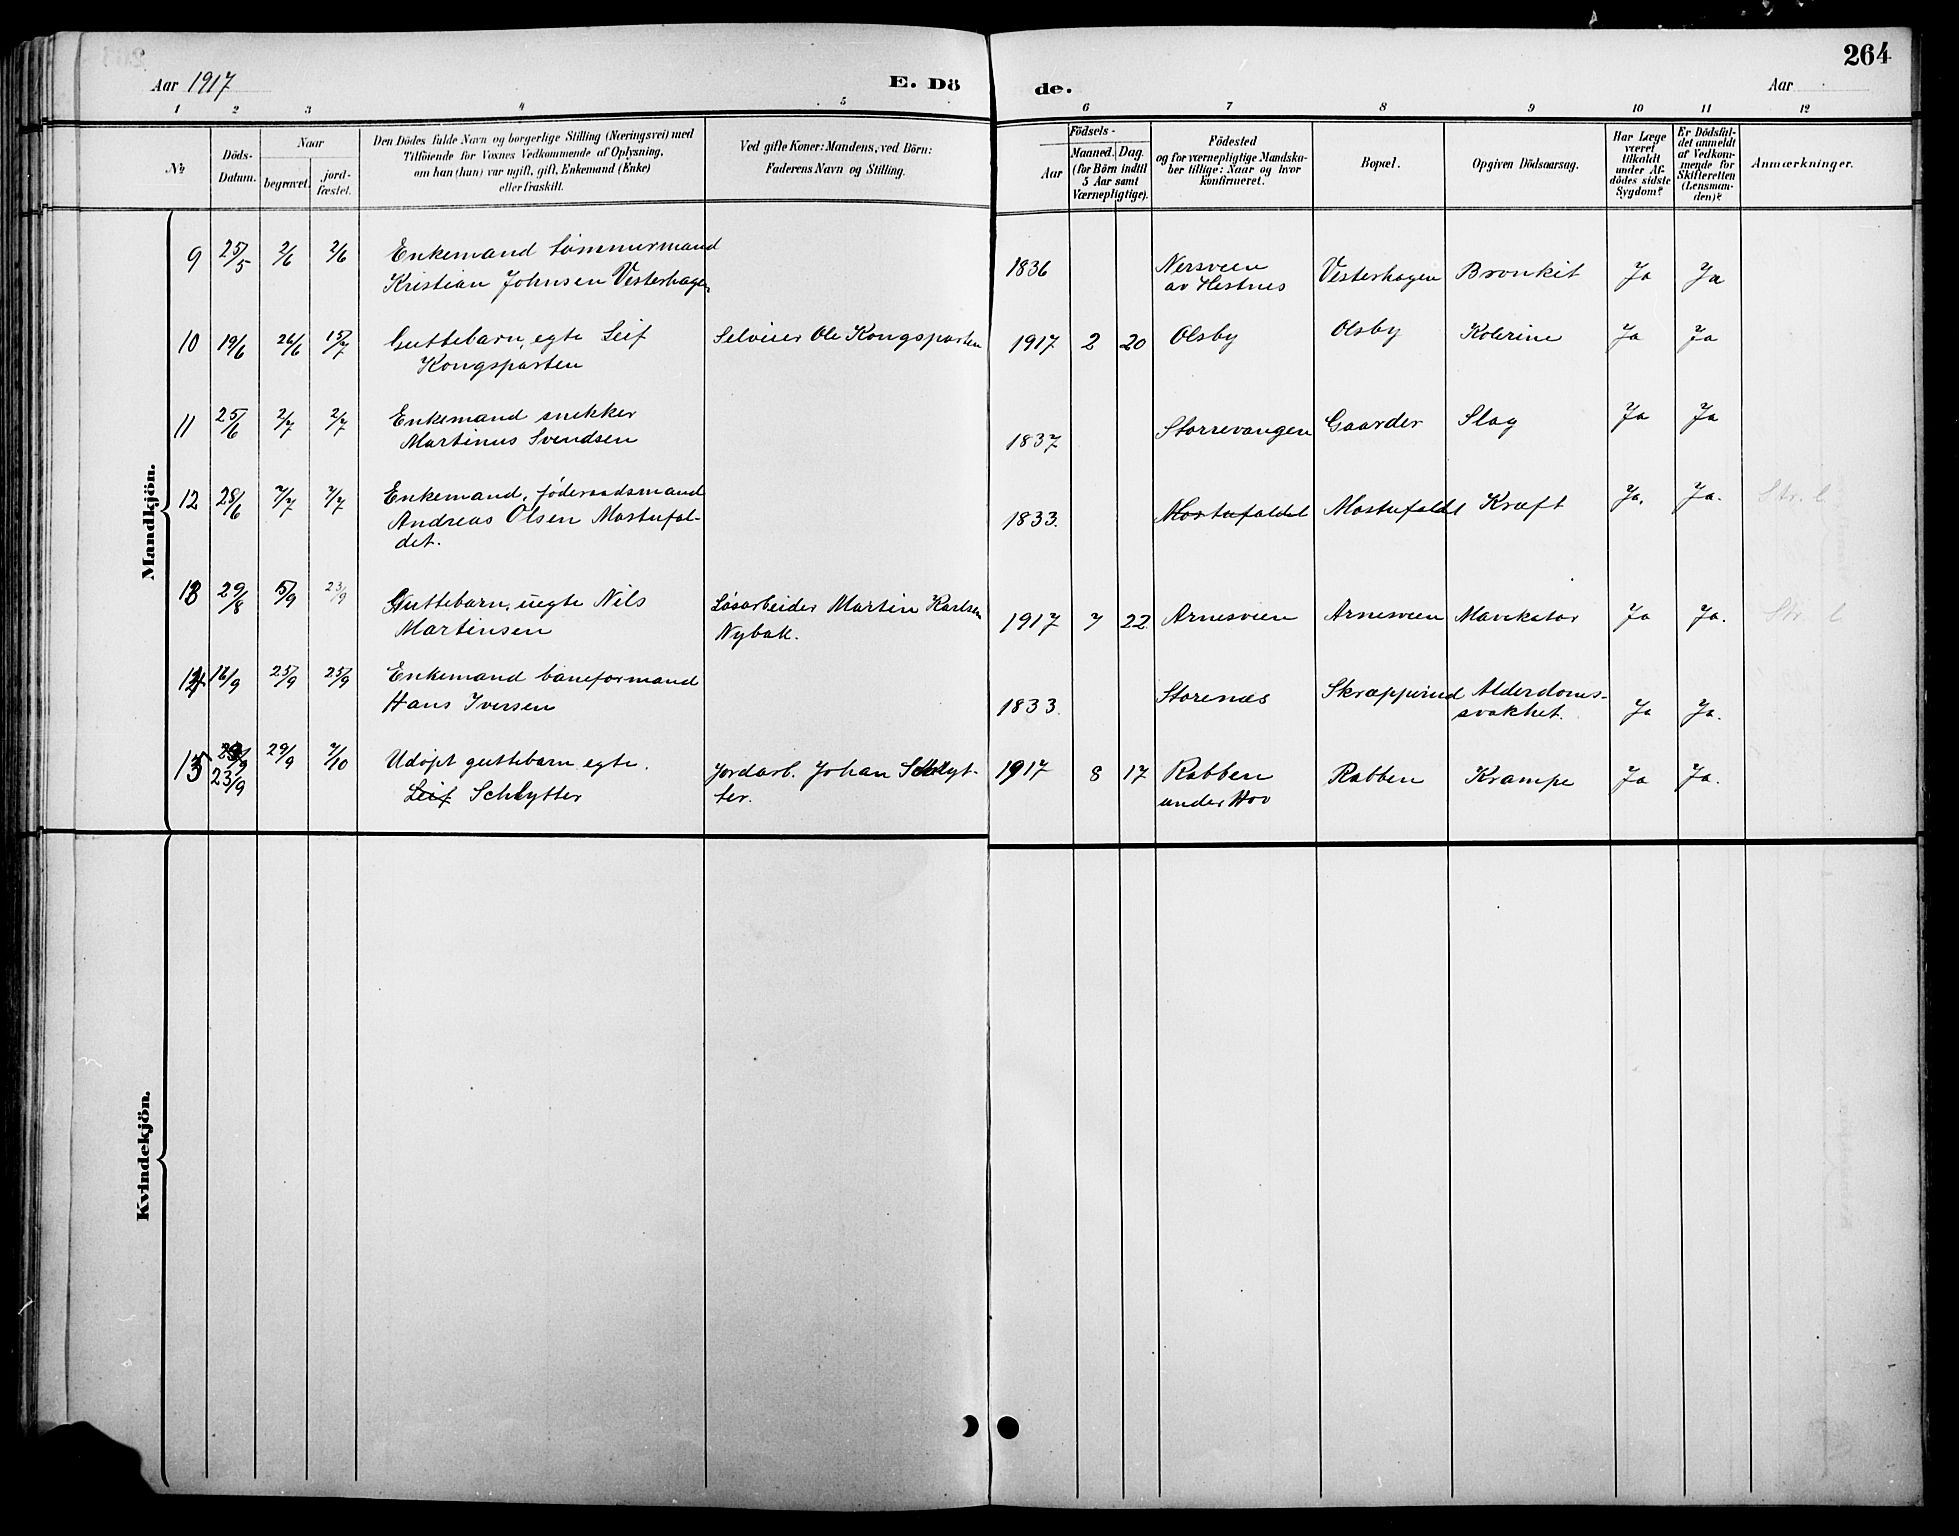 264
Aar 1917
E. Dö
de.
Aar
1 2 3 4 5 6 7 8 9 10 11 12
№
Döds-
Datum.
Naar
begravet.
jord-
fæstet.
Den Dödes fulde Navn og borgerlige Stilling (Næringsvei) med
Tilföiende for Voxnes Vedkommende af Oplysning,
om han (hun) var ugift, gift, Enkemand (Enke)
eller fraskilt.
Ved gifte Koner: Mandens, ved Börn:
Faderens Navn og Stilling.
Födsels-
Aar
Maaned. Dag.
(for Börn indtil
5 Aar samt
Værnepligtige).
Födested
og for værnepligtige Mandska-
ber tillige: Naar og hvor
konfirmeret.
Bopæl.
Opgiven Dödsaarsag.
Har Læge
været
tilkaldt
under Af-
dödes sidste
Sygdom?
Er Dödsfal-
det anmeldt
af Vedkom-
mende for
Skifteretten
(Lensman-
den)?
Anmærkninger.
Mandkjön.
9 25/5 2/6 2/6 Enkemand tømmermand
Kristian Johnsen Vesterhagen
1836 Nersveen
av Hestnes
Vesterhagen Bronkit Ja Ja
10 19/6 26/6 15/7 Guttebarn, egte Leif
Kongsparten
Selveier Ole Kongsparten
1917 2 20 Olsby Olsby Kolerine Ja Ja
11 25/6 2/7 2/7 Enkemand snekker
Martinus Svendsen
1837 Storrevangen Gaarder Slag Ja Ja
12 28/6 7/7 7/7 Enkemand, føderaadsmand
Andreas Olsen Mostufal-
det.
1833. Mostufaldet Mostufaldet Kræft Ja. Ja. Str. l
13 29/8 5/9 23/9 Guttebarn, uegte Nils
Martinsen
Løsarbeider Martin Karlsen
Nybak.
1917 7 22. Arnesveen Arnesveen Mavekatar Ja Ja. Str. l
14 16/9 25/9 25/9 Enkemand baneformand
Hans Iversen
1833. Storenes Skræppirud Alderdoms-
svakhet. Ja Ja.
15 23/9 29/9 7/10 Udøpt guttebarn egte.
Leif Schlytter
Jordarb. Johan Schlyt-
ter.
1917 8 17 Rabben
under Hov
Rabben Krampe Ja Ja.
Kvindekjön.